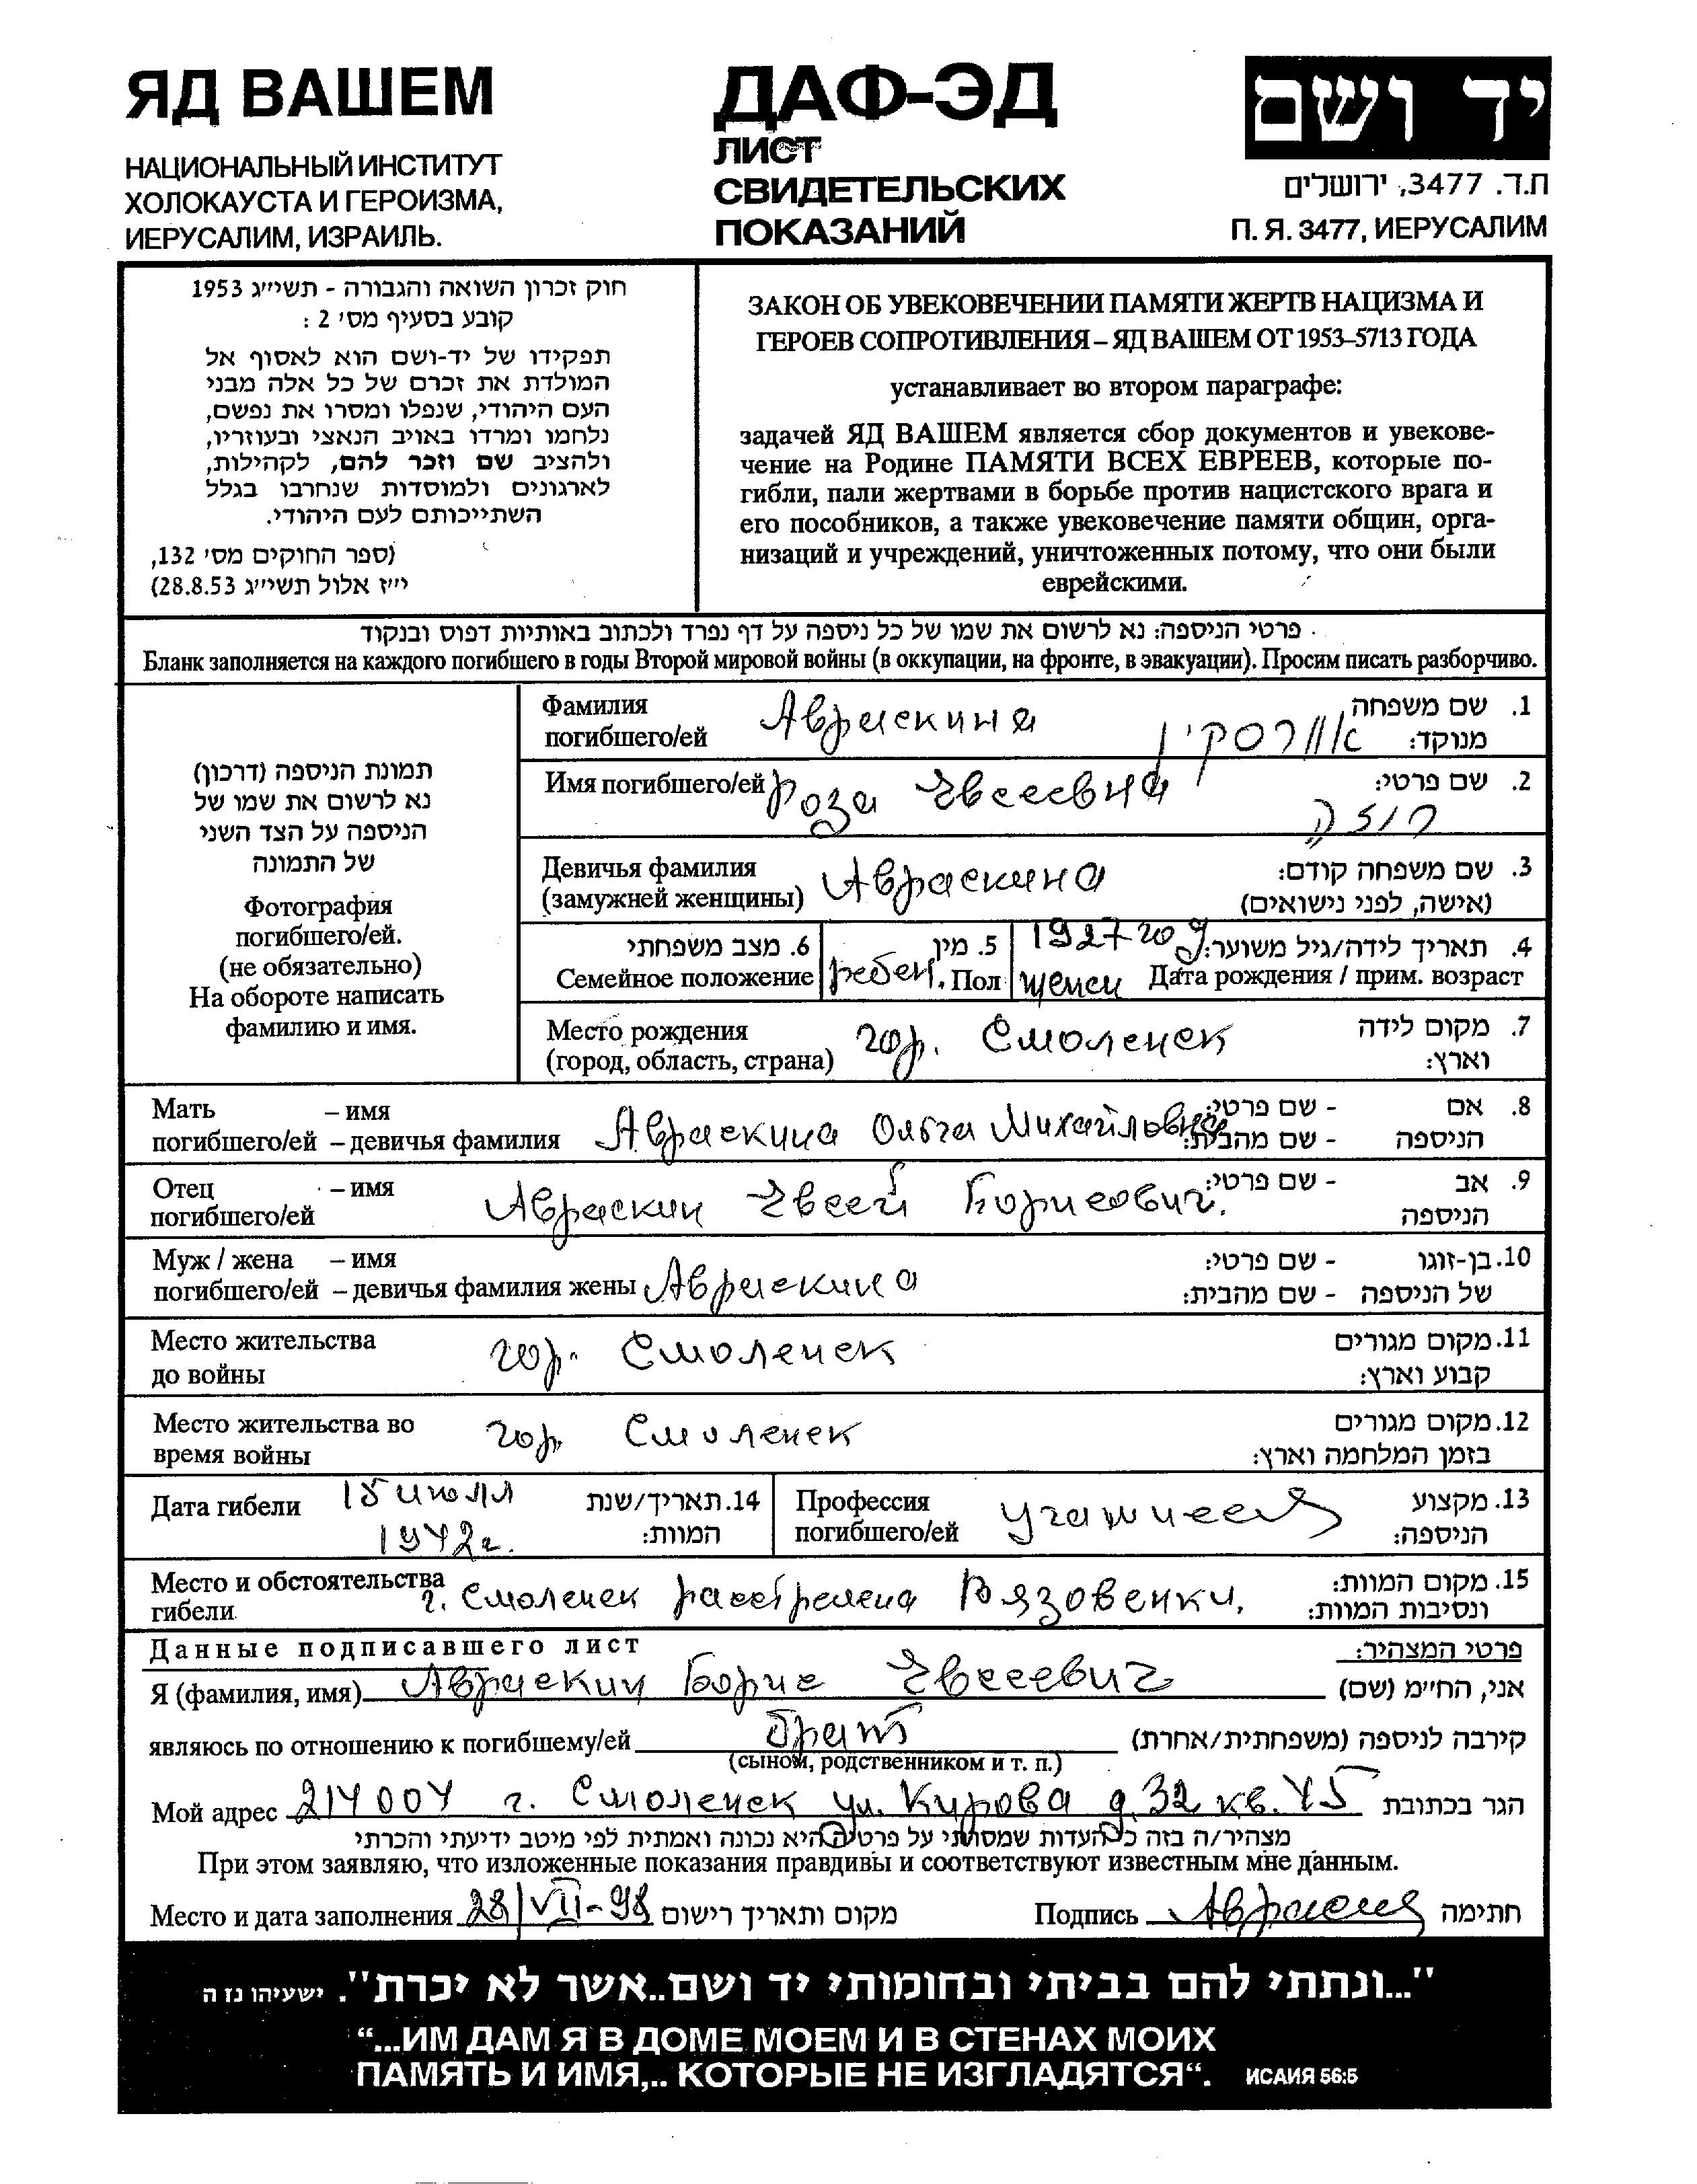 ЯД ВАШЕМ
НАЦИОНАЛЬНЫЙ ИНСТИТУТ
ХОЛОКАУСТА И ГЕРОИЗМА,
ИЕРУСАЛИМ, ИЗРАИЛЬ.
ДАФ-ЭД
ЛИСТ
СВИДЕТЕЛЬСКИХ
ПОКАЗАНИЙ
יד ושם
ת.ד. 3477, ירושלים
П. Я. 3477, ИЕРУСАЛИМ
חוק זכרון השואה והגבורה - תשי״ג 1953
קובע בסעיף מס׳ 2 :
תפקידו של יד-ושם הוא לאסוף אל
המולדת את זכרם של כל אלה מבני
העם היהודי, שנפלו ומסרו את נפשם,
נלחמו ומרדו באויב הנאצי ובעוזריו,
ולהציב שם וזכר להם, לקהילות,
לארגונים ולמוסדות שנחרבו בגלל
השתייכותם לעם היהודי.
(ספר החוקים מס׳ 132,
י״ז אלול תשי״ג 28.8.53)
ЗАКОН ОБ УВЕКОВЕЧЕНИИ ПАМЯТИ ЖЕРТВ НАЦИЗМА И
ГЕРОЕВ СОПРОТИВЛЕНИЯ – ЯД ВАШЕМ ОТ 1953–5713 ГОДА
устанавливает во втором параграфе:
задачей ЯД ВАШЕМ является сбор документов и увекове-
чение на Родине ПАМЯТИ ВСЕХ ЕВРЕЕВ, которые по-
гибли, пали жертвами в борьбе против нацистского врага и
его пособников, а также увековечение памяти общин, орга-
низаций и учреждений, уничтоженных потому, что они были
еврейскими.
פרטי הניספה: נא לרשום את שמו של כל ניספה על דף נפרד ולכתוב באותיות דפוס ובנקוד
Бланк заполняется на каждого погибшего в годы Второй мировой войны (в оккупации, на фронте, в эвакуации). Просим писать разборчиво.
תמונת הניספה (דרכון)
נא לרשום את שמו של
הניספה על הצד השני
של התמונה
Фотография
погибшего/ей.
(не обязательно)
На обороте написать
фамилию и имя.
Фамилия Авраскина 1. שם משפחה
погибшего/ей אוורסקין מנוקד:
Имя погибшего/ей Роза Евсеевна 2. שם פרטי:
רוזה
Девичья фамилия Авраскина 3. שם משפחה קודם:
(замужней женщины) (אישה, לפני נישואים)
6. מצב משפחתי 5. מין 1927 год 4. תאריך לידה/גיל משוער:
Семейное положение ребен. Пол женск Дата рождения / прим. возраст
Место рождения гор. Смоленск 7. מקום לידה
(город, область, страна) וארץ:
Мать – имя 8. אם - שם פרטי:
погибшего/ей – девичья фамилия Авраскина Ольга Михайловна הניספה - שם מהבית:
Отец – имя 9. אב - שם פרטי:
погибшего/ей Авраскин Евсей Борисович. הניספה
Муж / жена – имя 10. בן-זוגו - שם פרטי:
погибшего/ей – девичья фамилия жены Авраскина של הניספה - שם מהבית:
Место жительства гор. Смоленск 11. מקום מגורים
до войны קבוע וארץ:
Место жительства во гор. Смоленск 12. מקום מגורים
время войны בזמן המלחמה וארץ:
Дата гибели 15 июля 14. תאריך/שנת
1942г. המוות:
Профессия учащиеся 13. מקצוע
погибшего/ей הניספה:
Место и обстоятельства г. Смоленск расстрелена Вязовеньки. 15. מקום המוות:
гибели ונסיבות המוות:
Данные подписавшего лист פרטי המצהיר:
Я (фамилия, имя) Авраскин Борис Евсеевич אני, החי״מ (שם)
являюсь по отношению к погибшему/ей брат קירבה לניספה (משפחתית/אחרת)
(сыном, родственником и т. п.)
Мой адрес 214004 г. Смоленск ул. Кирова д. 32 кв. 45 הגר בכתובת
מצהיר/ה בזה כי העדות שמסרתי על פרטיה היא נכונה ואמתית לפי מיטב ידיעתי והכרתי
При этом заявляю, что изложенные показания правдивы и соответствуют известным мне данным.
Место и дата заполнения 28/VII-98 מקום ותאריך רישום Подпись חתימה
"...ונתתי להם בביתי ובחומותי יד ושם..אשר לא יכרת". ישעיהו נז ה
“...ИМ ДАМ Я В ДОМЕ МОЕМ И В СТЕНАХ МОИХ
ПАМЯТЬ И ИМЯ,.. КОТОРЫЕ НЕ ИЗГЛАДЯТСЯ“. ИСАИЯ 56:5